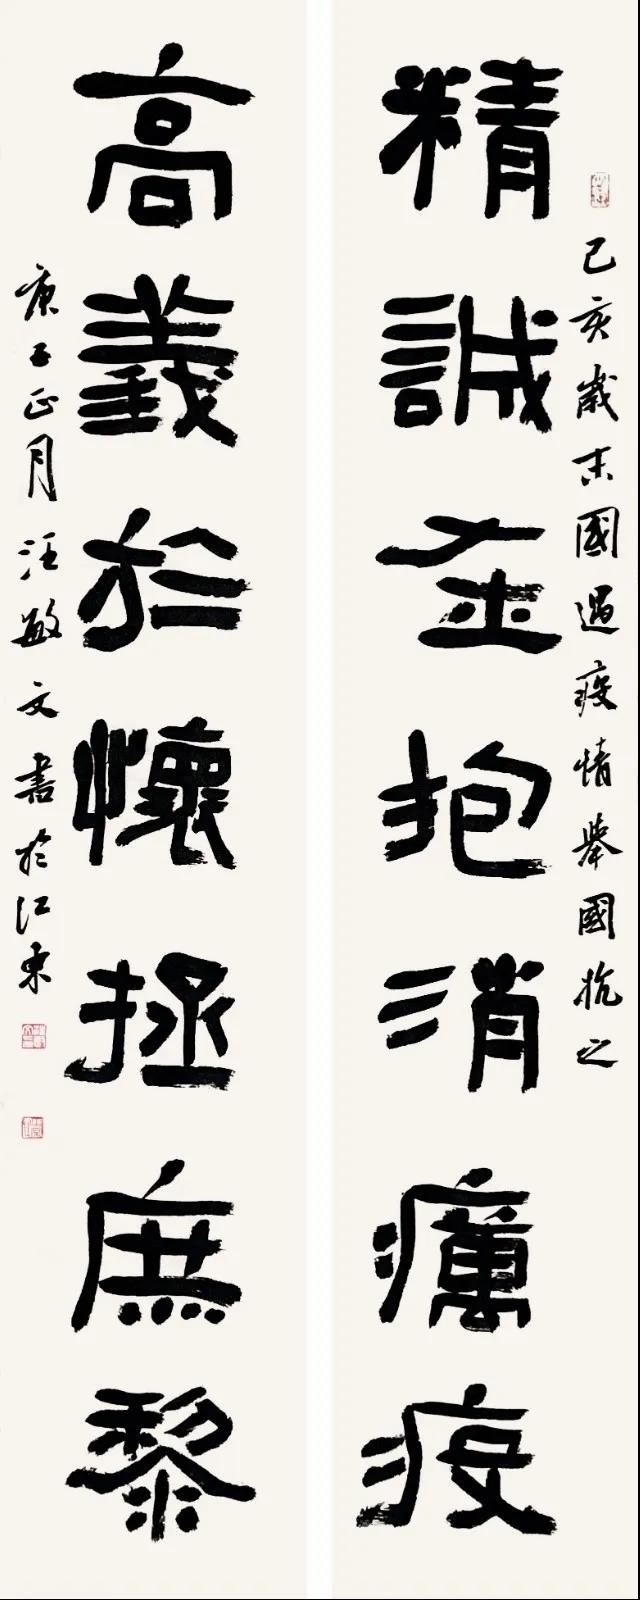 己亥歲末國遇疫情舉國抗之
精誠在抱消癘疫
高義於懷拯庶黎
庚子正月汪敏文書於江東